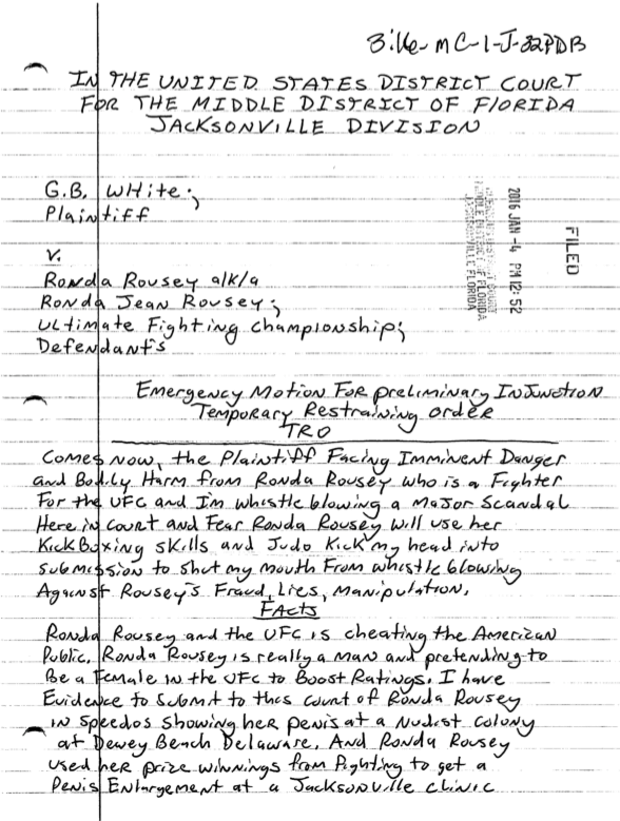 3:16-mC-1-J-32PDB
IN THE UNITED STATES DISTRICT COURT
FOR THE MIDDLE DISTRICT OF FlORIDA
JACKSONVILLE DIVISION
G.B. WHite;
Plaintiff
V.
Ronda Rousey a/k/a
Ronda Jean Rousey;
Ultimate Fighting Championship;
Defendants
FILED
2016 JAN -4 PM 12: 52
MIDDLE DISTRICT OF FLORIDA
JACKSONVILLE FLORIDA
Emergency Motion For preliminary Injunction
Temporary Restraining order
TRO
Comes Now, the Plaintiff Facing Imminent Danger
and Bodily Harm from Ronda Rousey who is a Fighter
For the UFC and I'm whistle blowing a Major Scandal
Here in Court and Fear Ronda Rousey will use her
KickBoxing skills and Judo Kick my head into
submission to shut my mouth From whistle blowing
Against Rousey's Fraud, Lies, Manipulation.
Facts
Ronda Rousey and the UFC is cheating the American
Public. Ronda Rousey is really a man and pretending to
Be a Female in the UFC to Boost Ratings. I have
Evidence to Submit to this Court of Ronda Rousey
in speedos showing her penis at a Nudist colony
at Dewey Beach Delaware. And Ronda Rousey
used her prize winnings from Fighting to get a
Penis Enlargement at a Jacksonville clinic